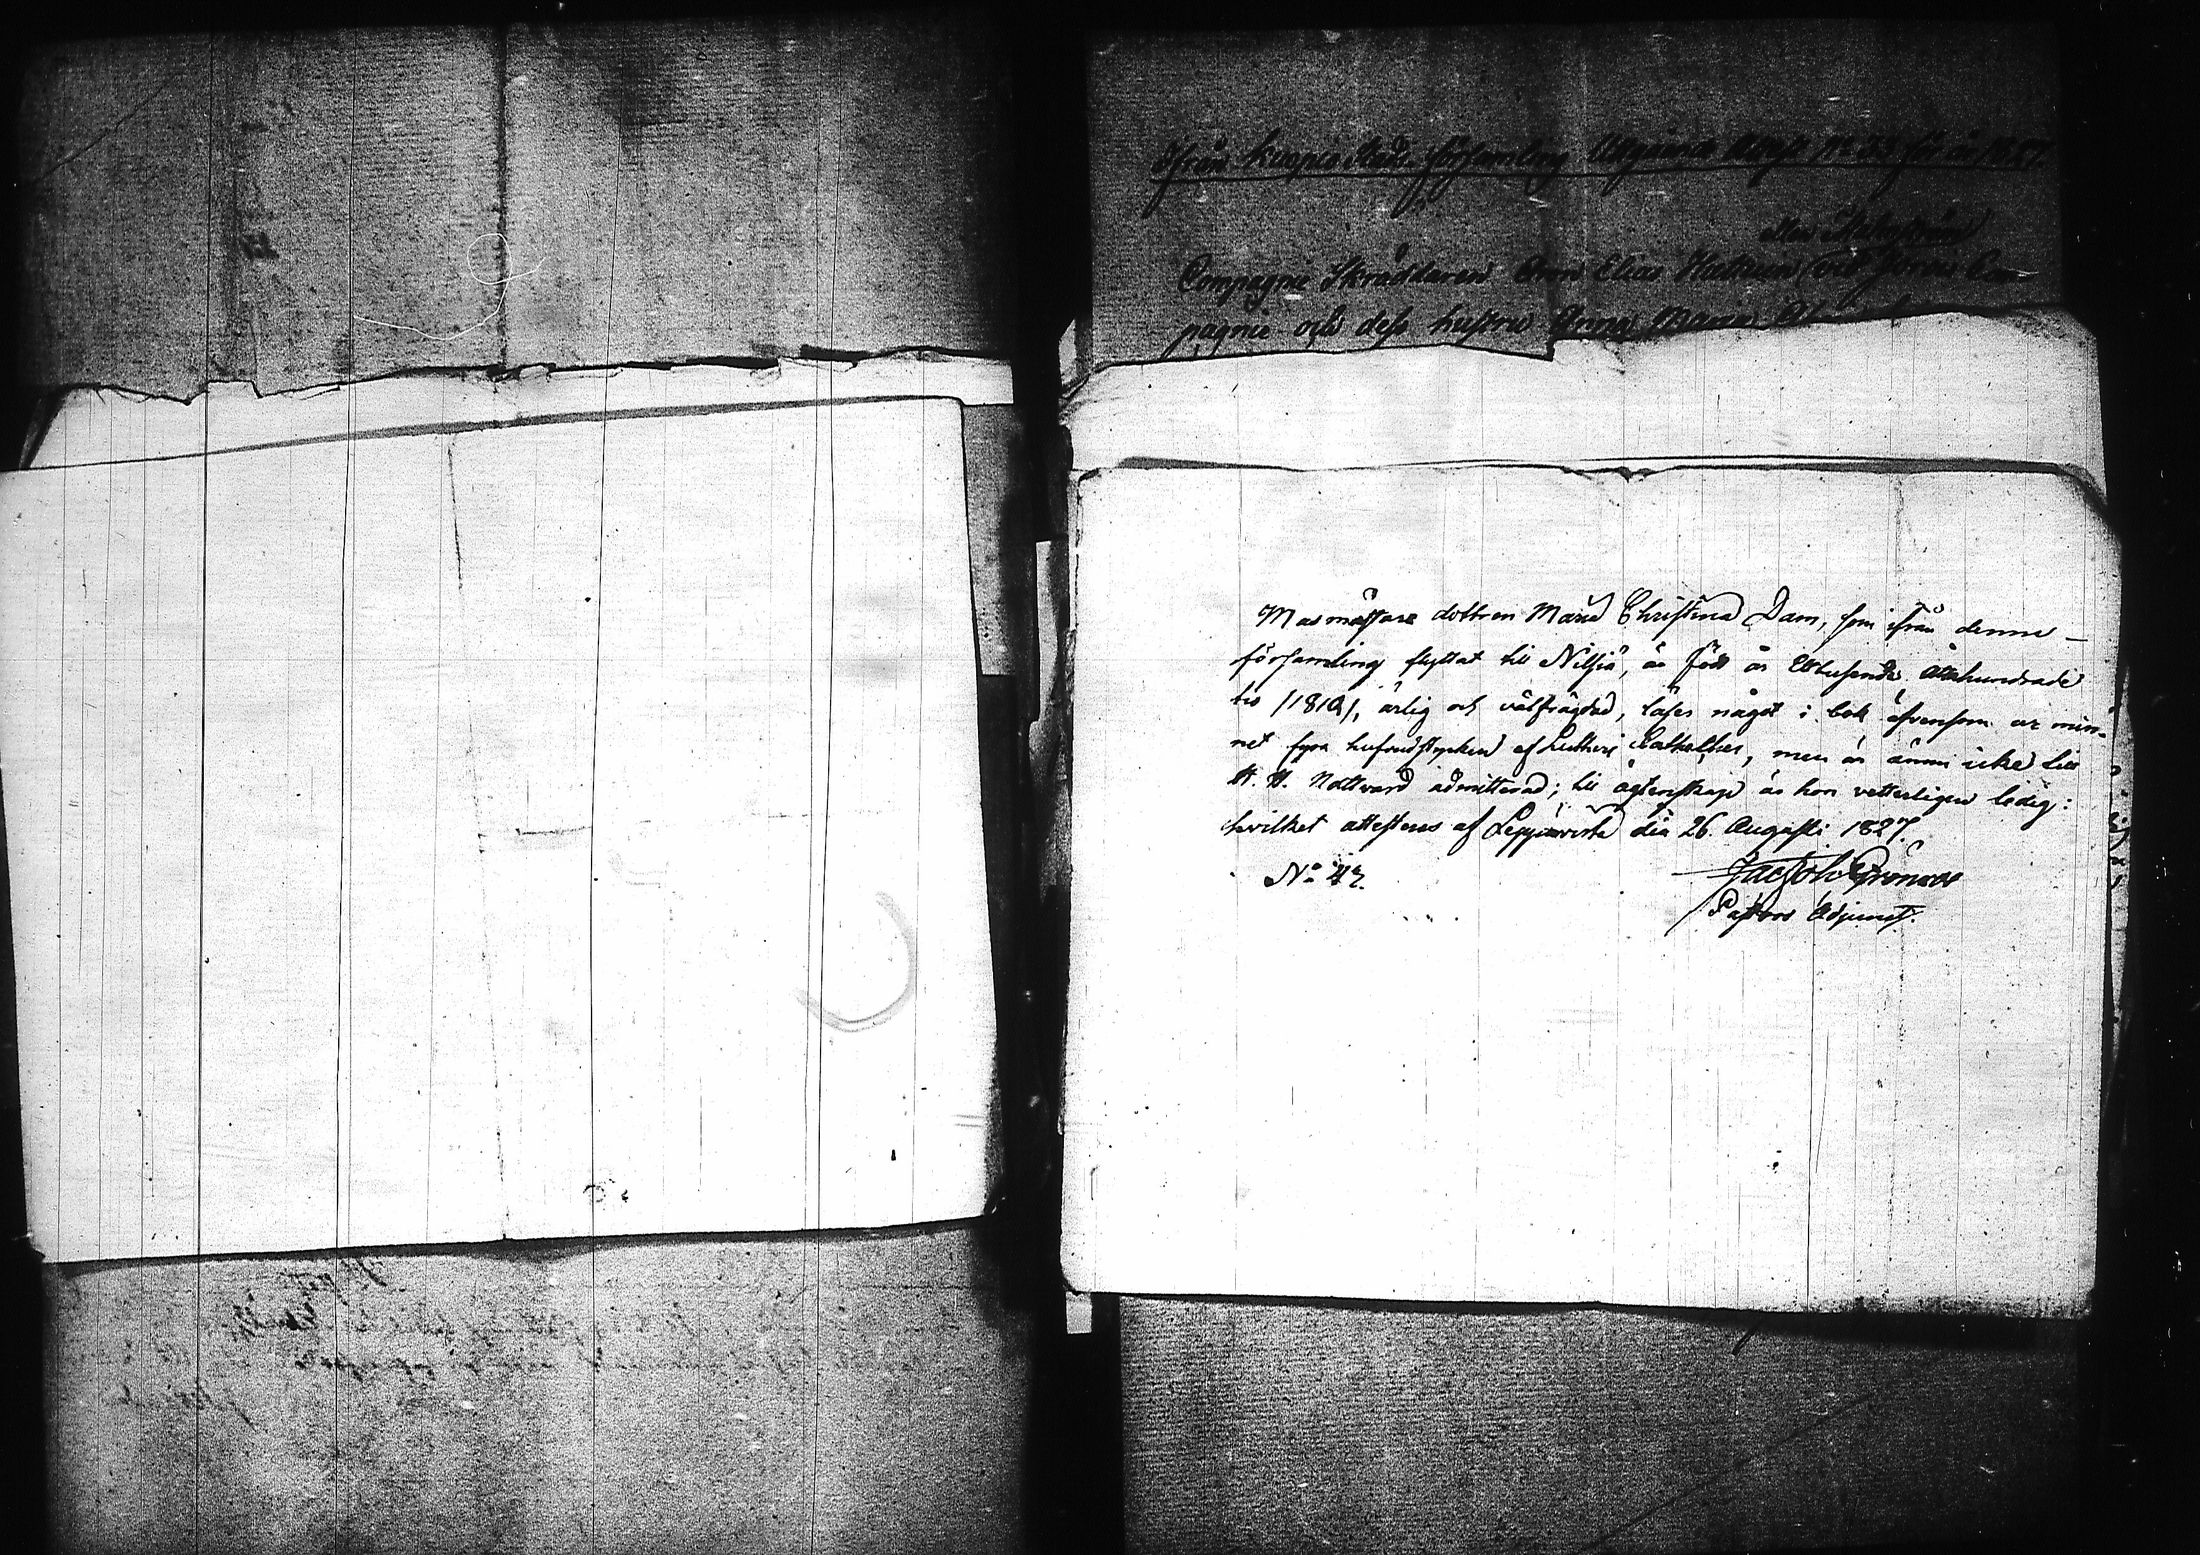 ifrån Kuopio Stads församling Utgående Attest No 33 för år 1827.
Compagnie Skräddaren Elias
pagnie och dess hustru Anna Maria
Masmästare dottren Maria Christina Dam, som ifrån denne
församling flyttat till Nilsiä, är född år Ettusende åttahundrade
tio /1810/, ärlig och välfrägdad, läser något i bok äfvensom ur min-
net fyra hufvudstycken af Lutheri Cathekes, men är ännu icke till
H. H. Nattvard admitterad; till ägtenskap är hon vetterligen ledig:
hvilket attesteras af Leppävirta den 26. Augusti 1827.
No 42.
Jacob Grönroos
Pastors Adjunct.